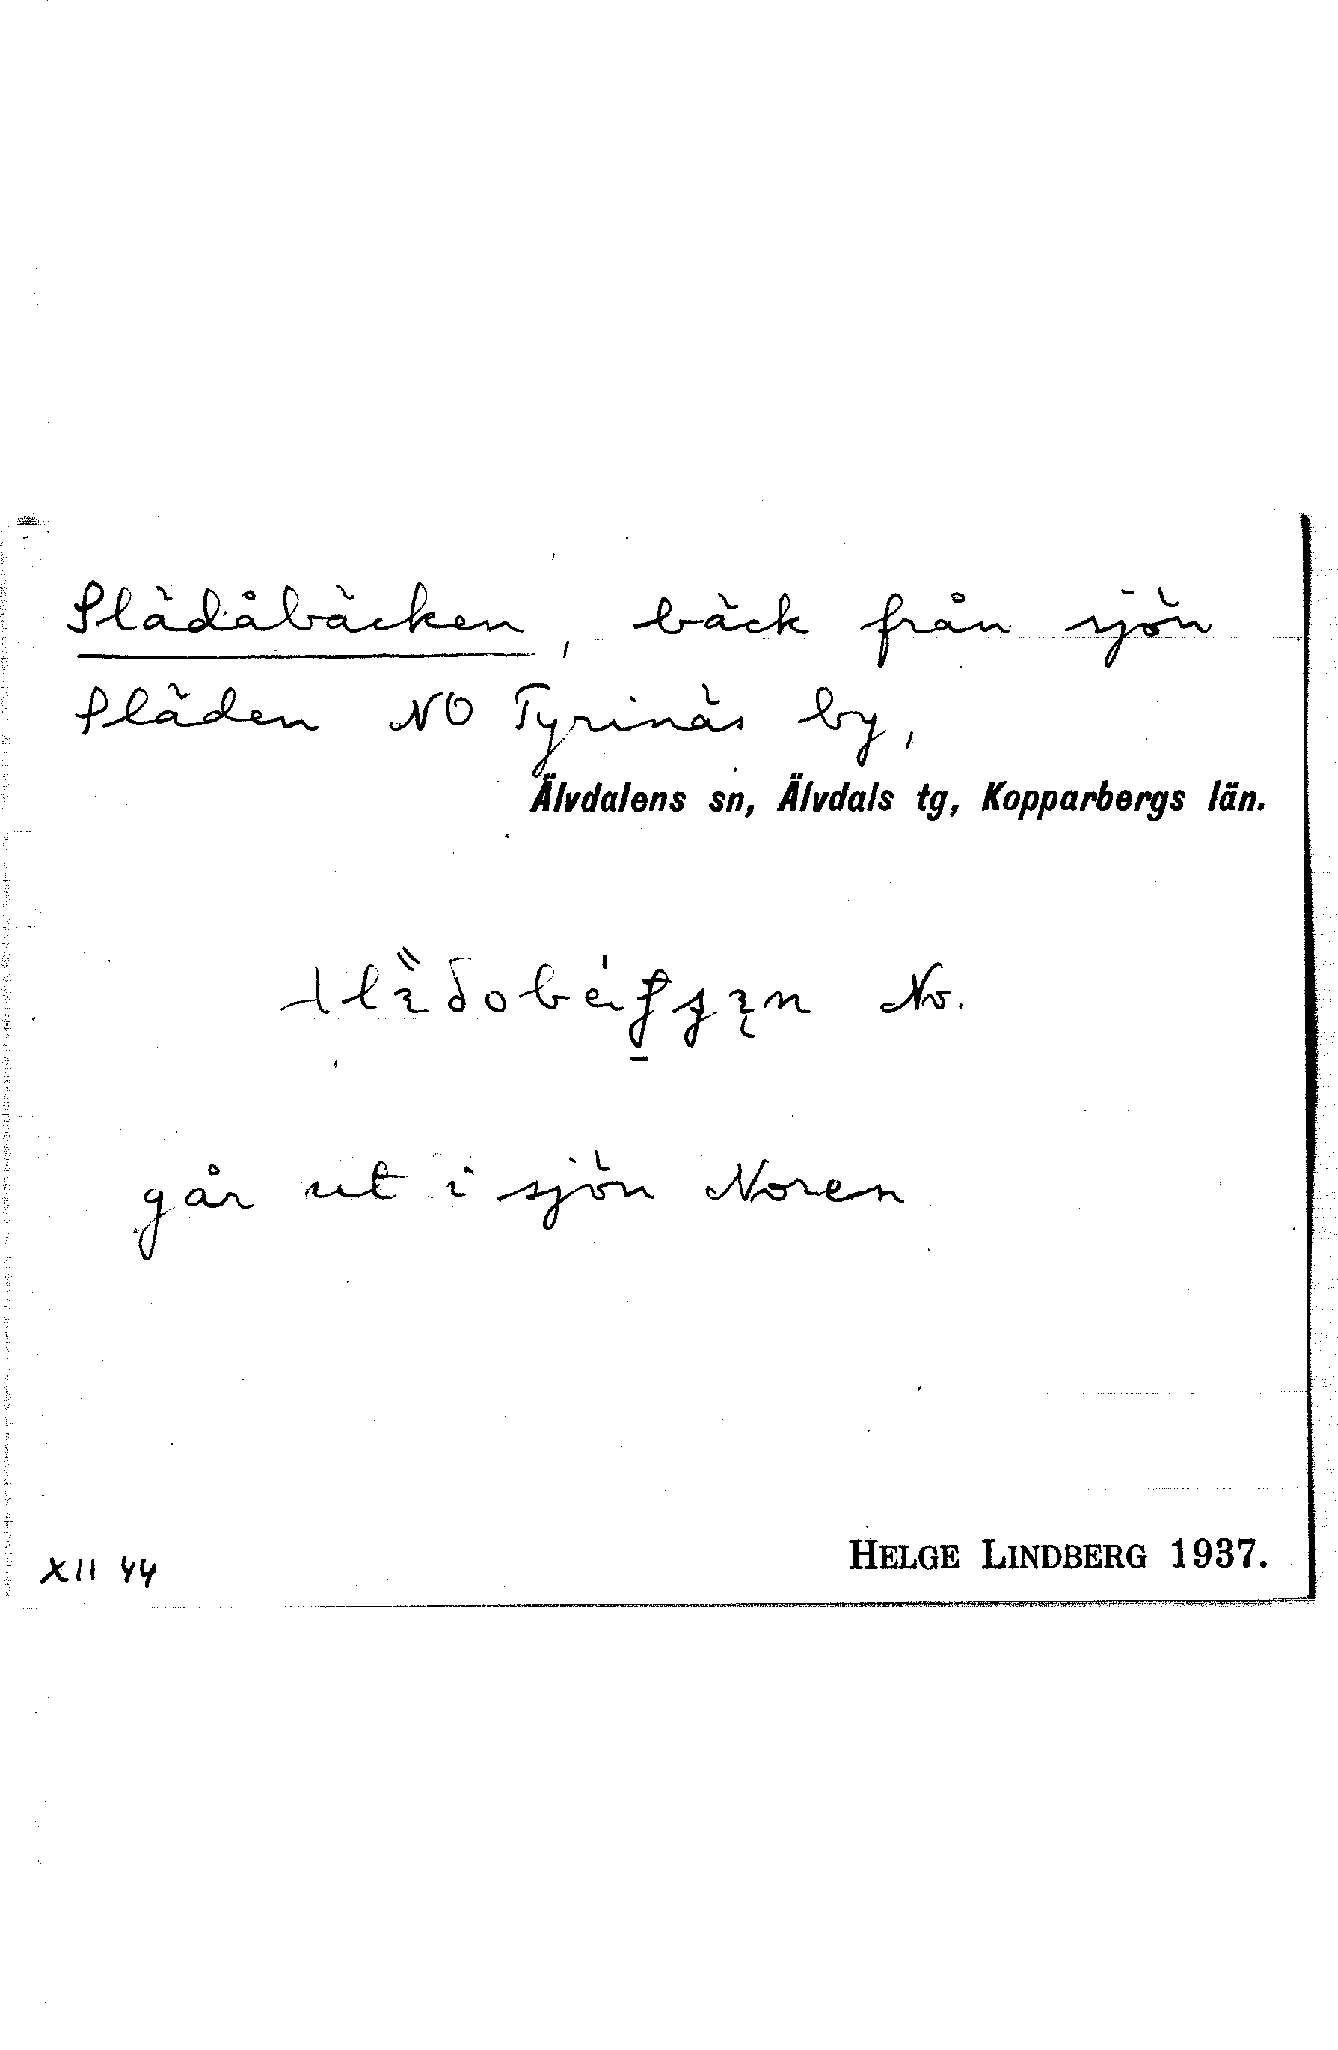 Slädåbäcken, bäck från sjön
Släden NO Tyrinäs by,
Älvdalens sn, Älvdals tg, Kopparbergs län.
No.
går ut i sjön Noren
XII 44
HELGE LINDBERG 1937.